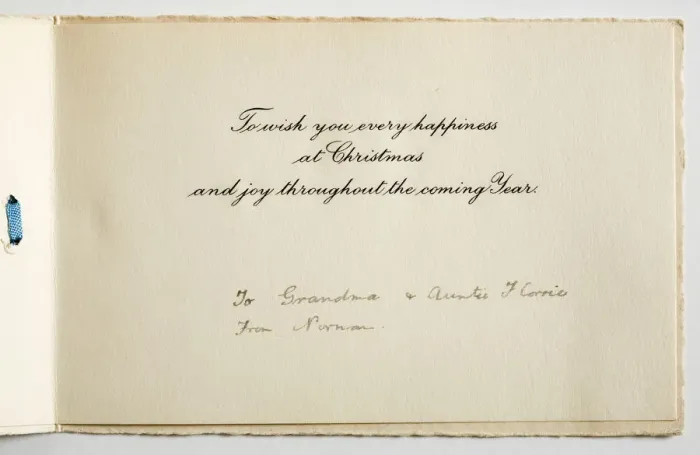 To wish you every happiness
at Christmas
and joy throughout the coming Year.
To Grandma & Auntie Florrie
From Norman.